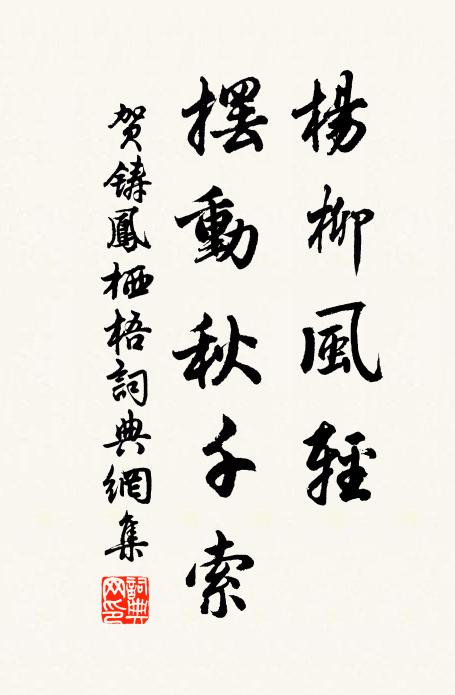 楊柳風輕
擺動秋千索
賀鑄鳳栖梧詞典網集
詞典網印